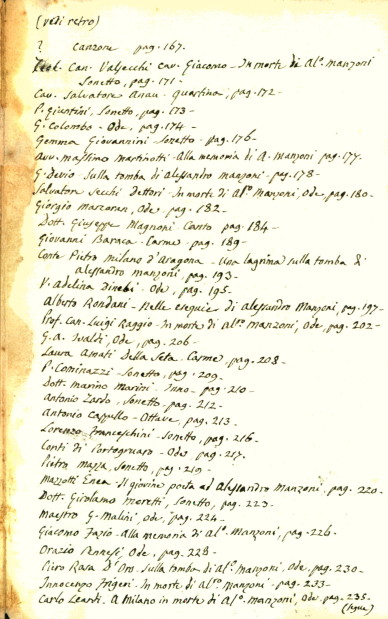 (vedi retro)
? Canzone pag. 167.
Can. Valsecchi cav. Giacomo - In morte di Alº. Manzoni
Sonetto, pag. 171 -
Cav. Salvatore Anau - quartina, pag. 172 -
P. Giuntini, Sonetto, pag. 173 -
G. Colombo - Ode, pag. 174 -
Gemma Giovannini - Sonetto - pag. 176 -
Avv. Massimo Martinotti - Alla memoria di A. Manzoni pag. 177.
G. Devio - Sulla tomba di Alessandro Manzoni - pag. 178 -
Salvatore Secchi Dettori - In morte di Alº. Manzoni, Ode, pag. 180 -
Giorgio Marzaran, Ode, pag. 182 -
Dott. Giuseppe Magnoni Canto pag. 184 -
Giovanni Baraca - Carme - pag. 189 -
Conte Pietro Milano d'Aragona - Una lagrima sulla tomba di
Alessandro Manzoni, pag. 193 -
V. Adelina - Ode, pag. 195 -
Alberto Rondani - Nelle esequie di Alessandro Manzoni, pag. 197 -
Prof. Can. Luigi Raggio - In morte di Alº. Manzoni, Ode, pag. 202 -
G. A. Ode, pag. 206 -
Laura Amati Della Seta - Carme, pag. 208 -
P. Cominazzi - Sonetto, pag. 209 -
Dott. Marino Marini - Inno - pag. 210 -
Antonio Zardo - Sonetto, pag. 212 -
Antonio Cappello - Ottave, pag. 213 -
Lorenzo Franceschini - Sonetto, pag. 216 -
Conti di Portogruaro - Ode pag. 217.
Pietro Mazza, Sonetto, pag. 219 -
Mazzotti Enea - Il giovine poeta ad Alessandro Manzoni, pag. 220 -
Dott. Girolamo Moretti, Sonetto, pag. 223 -
Maestro G. Malini, Ode, pag. 224 -
Giacomo Fazio - alla memoria di Alº. Manzoni, pag. 226 -
Orazio Annesi, Ode, pag. 228 -
Piero Rasa D'Oro - Sulla tomba di Alº. Manzoni, Ode, pag. 230 -
Innocenzo Frigeri - In morte di Alº. Manzoni - pag. 233 -
Carlo Leardi - A Milano in morte di Alº. Manzoni, Ode, pag. 235 -
(segue)